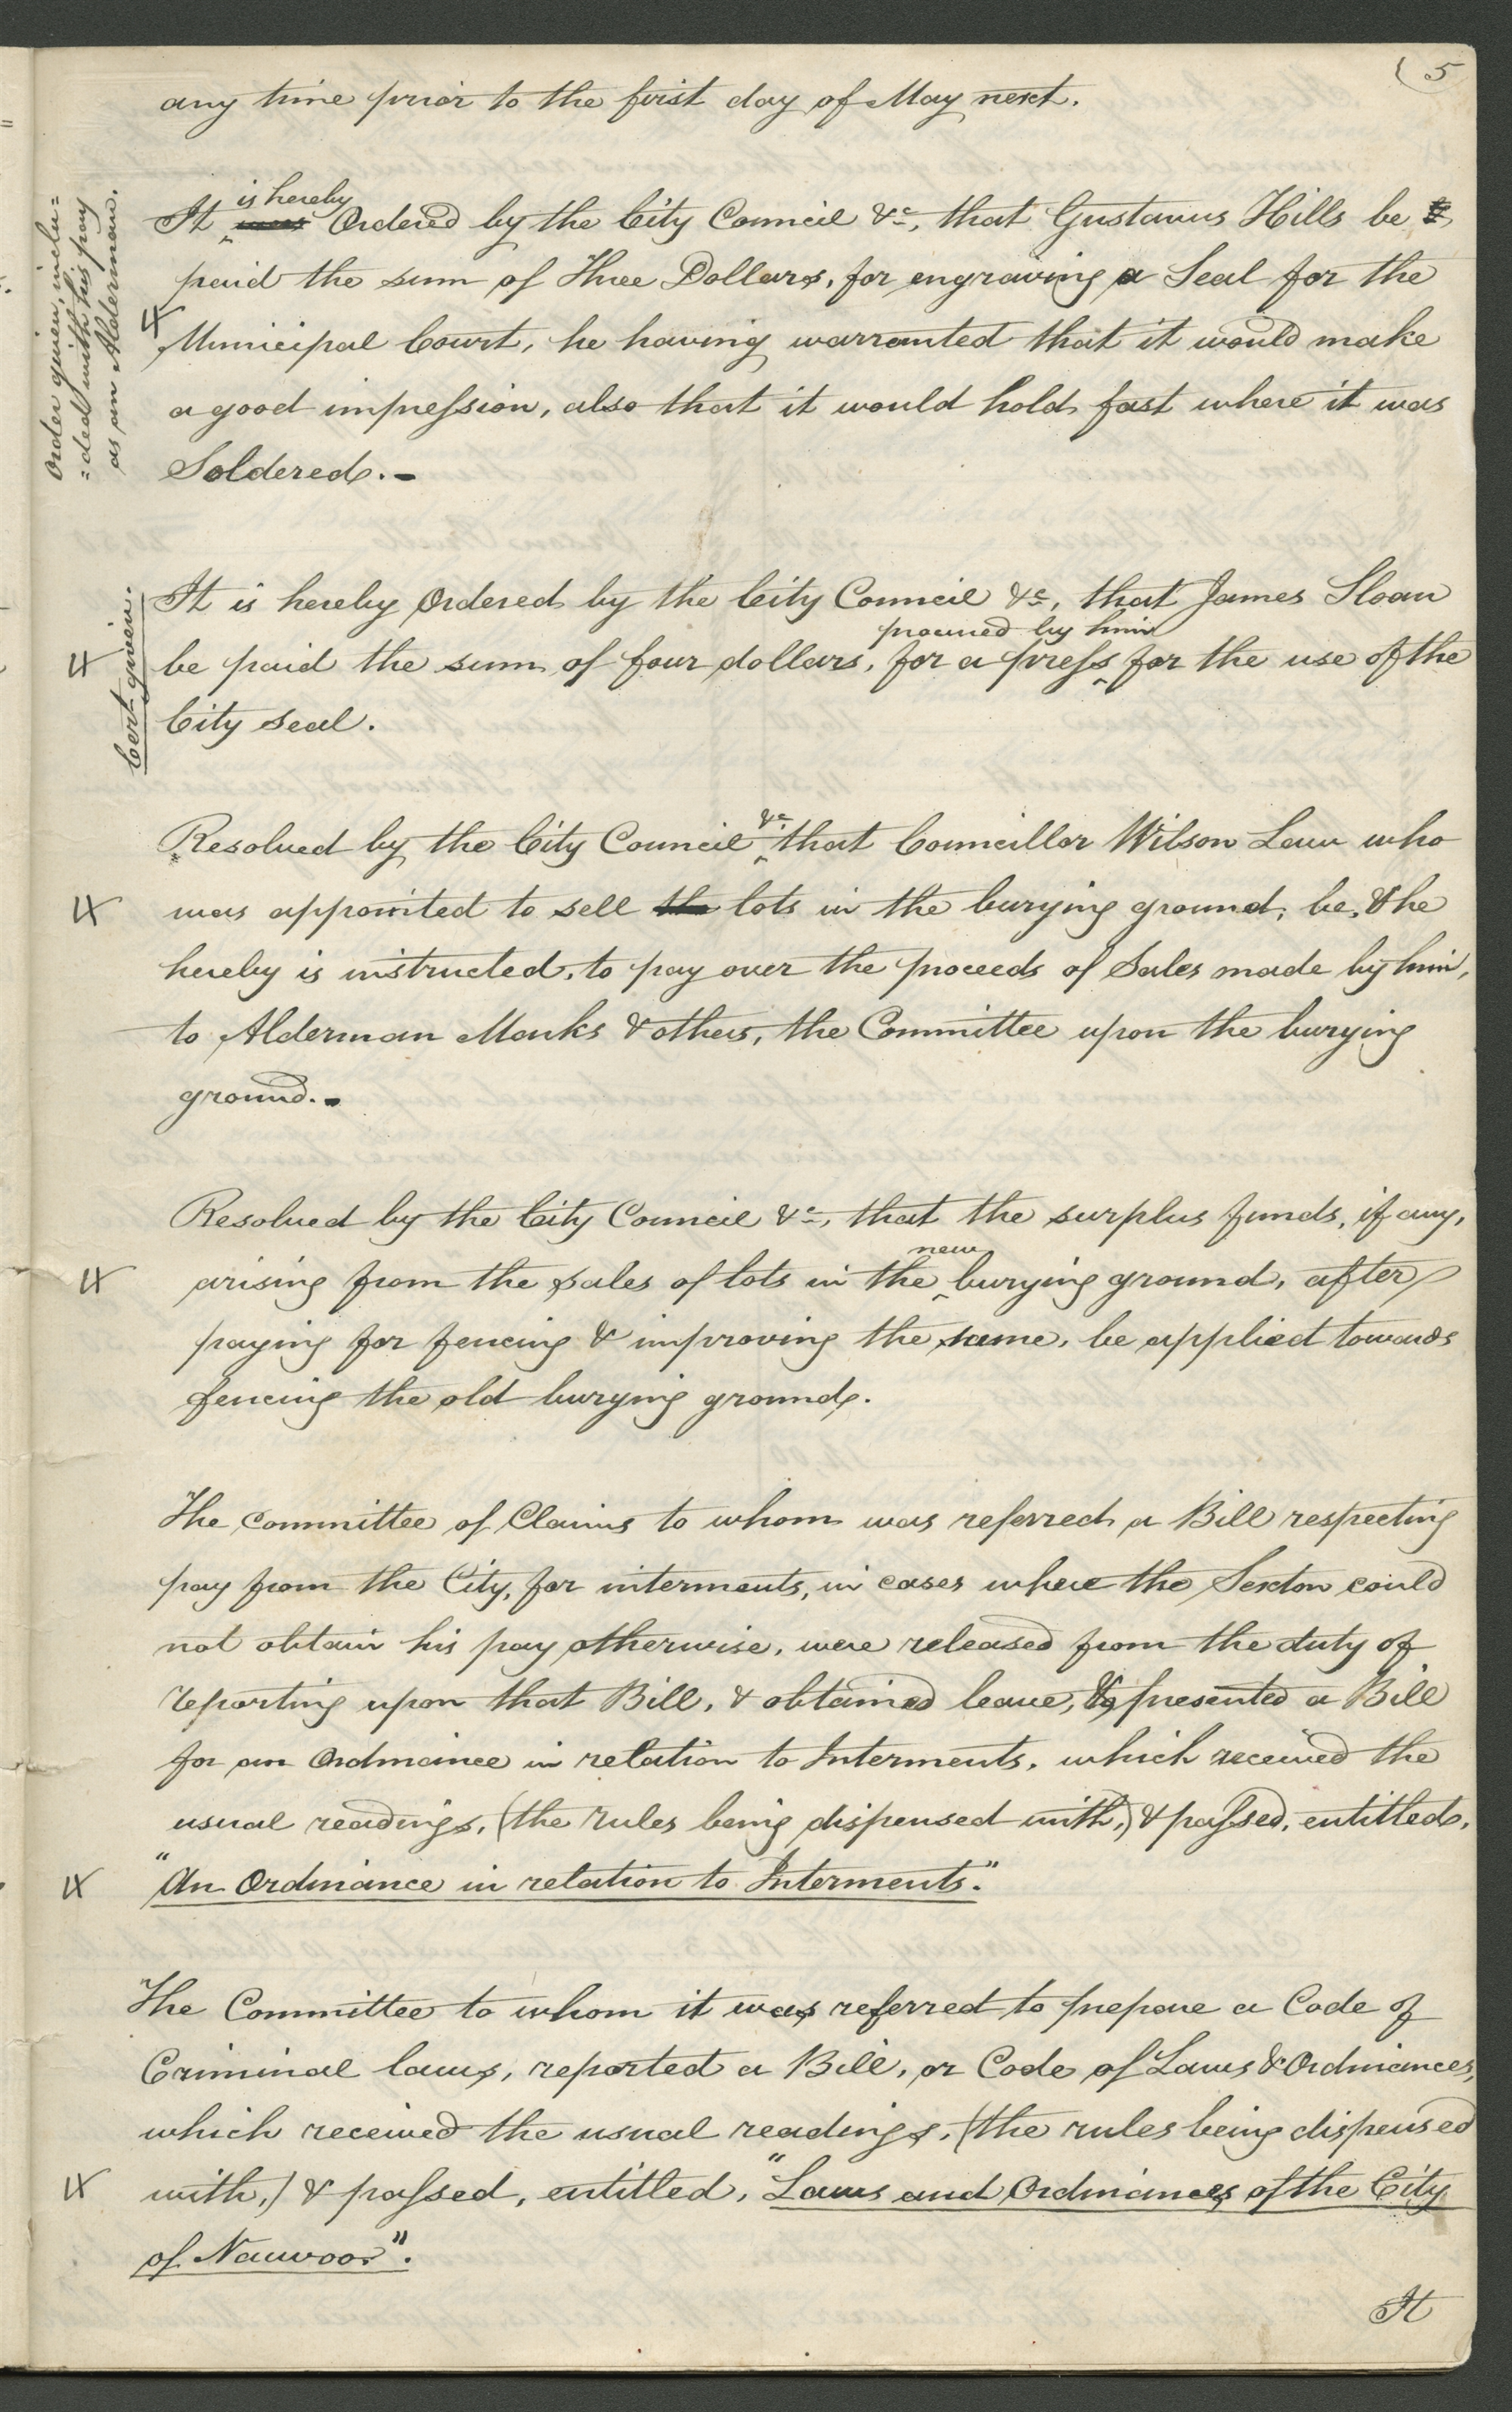 ( 5
any time prior to the first day of May next.
is hereby
It ^ was Ordered by the City Council &c, that Gustavus Hills be
paid the sum of Three Dollars, for engraving a Seal for the
Municipal Court, he having warranted that it would make
a good impression, also that it would hold fast where it was
Soldered. -
Order given, inclu=
=ded with his pay
as an Alderman.
It is hereby Ordered by the City Council &c, that James Sloan
procured by him
be paid the sum of four dollars, for a press ^ for the use of the
City seal.
Cert. given.
&c
Resolved by the City Council ^ that Councillor Wilson Law who
was appointed to sell the lots in the burying ground, be, & he
hereby is instructed, to pay over the proceeds of Sales made by him,
to Alderman Marks & others, the Committee upon the burying
ground. -
Resolved by the City Council &c, that the surplus funds, if any,
new
arising from the sales of lots in the ^ burying ground, after
paying for fencing & improving the same, be applied towards
fencing the old burying ground.
The Committee of Claims to whom was referred a Bill respecting
pay from the City, for interments, in cases where the Sexton could
not obtain his pay otherwise, were released from the duty of
reporting upon that Bill, & obtained leave, & presented a Bill
for an Ordinance in relation to Interments, which received the
usual readings, (the rules being dispensed with,) & passed, entitled,
"An Ordinance in relation to Interments."
The Committee to whom it was referred to prepare a Code of
Criminal laws, reported a Bill, or Code of Laws & Ordinances,
which received the usual readings, (the rules being dispensed
with,) & passed, entitled, "Laws and Ordinances of the City
of Nauvoo".
It